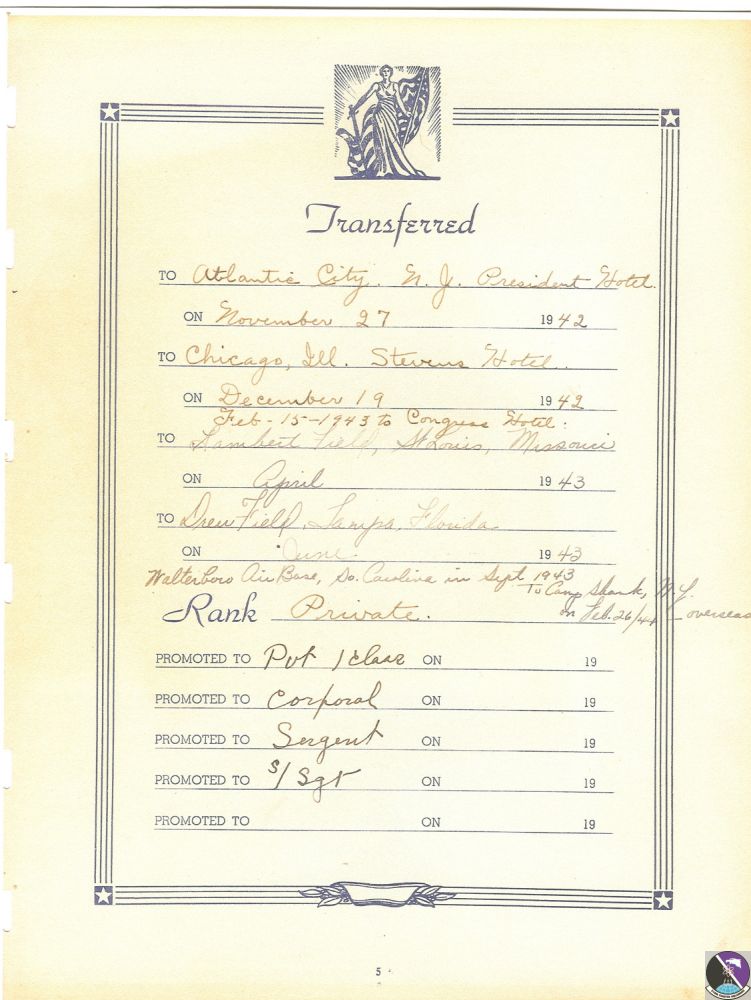 Transferred
TO Atlantic City. N. J. President Hotel.
ON November 27 1942
TO Chicago, Ill. Stevens Hotel.
ON December 19 1942
Feb - 15-1943 to Congress Hotel.
TO Lambert Field, St Louis, Missouri
ON April 1943
TO Drew Field, Tampa, Florida
ON June. 1943
Walterboro Air Base, So. Carolina in Sept 1943
To Camp Shank, N.Y.
on Feb. 26/44 - overseas
Rank Private.
PROMOTED TO Pvt 1 class ON 19
PROMOTED TO Corporal ON 19
PROMOTED TO Sergent ON 19
PROMOTED TO S/Sgt ON 19
PROMOTED TO ON 19
5